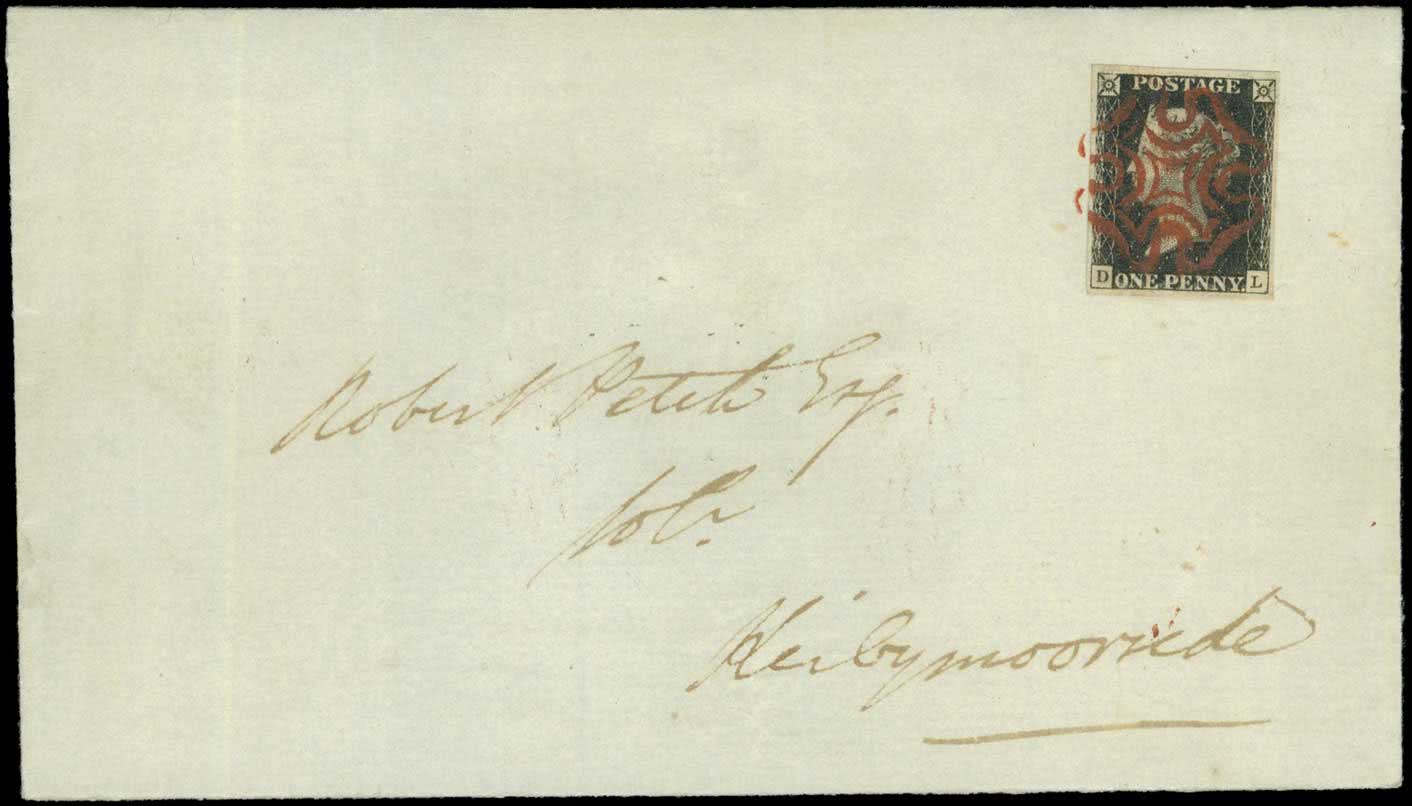 POSTAGE
D ONE PENNY. L
Robert Petch Esq.
Solr.
Keirbymoorside